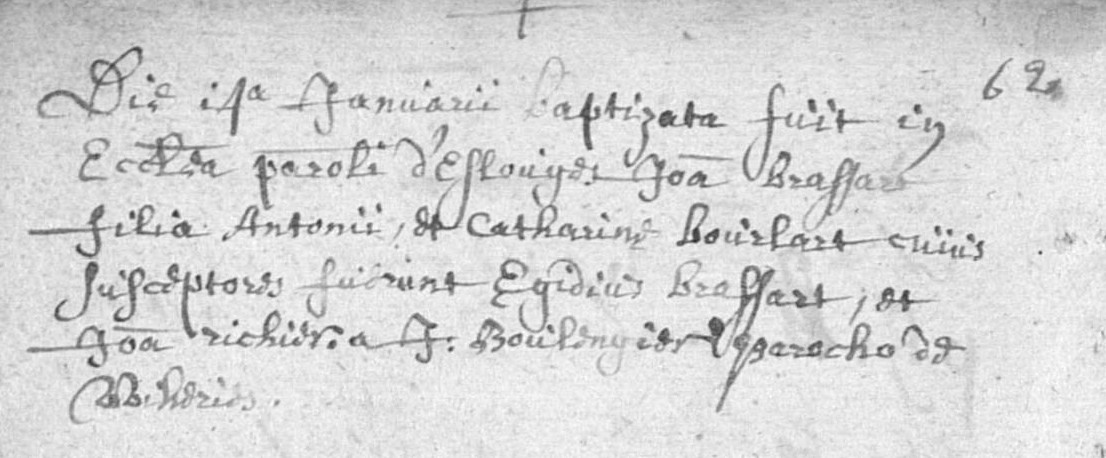 62
Die i4a Januarii baptizata fuit in
Ecclēa parolī d'Eslouges Joā brassart
filia Antonii, et Catharine bourlart cuius
susceptores fuerunt Egidius brassart, et
Joā richier. a J. Boulengier parocho de
Wiheries.